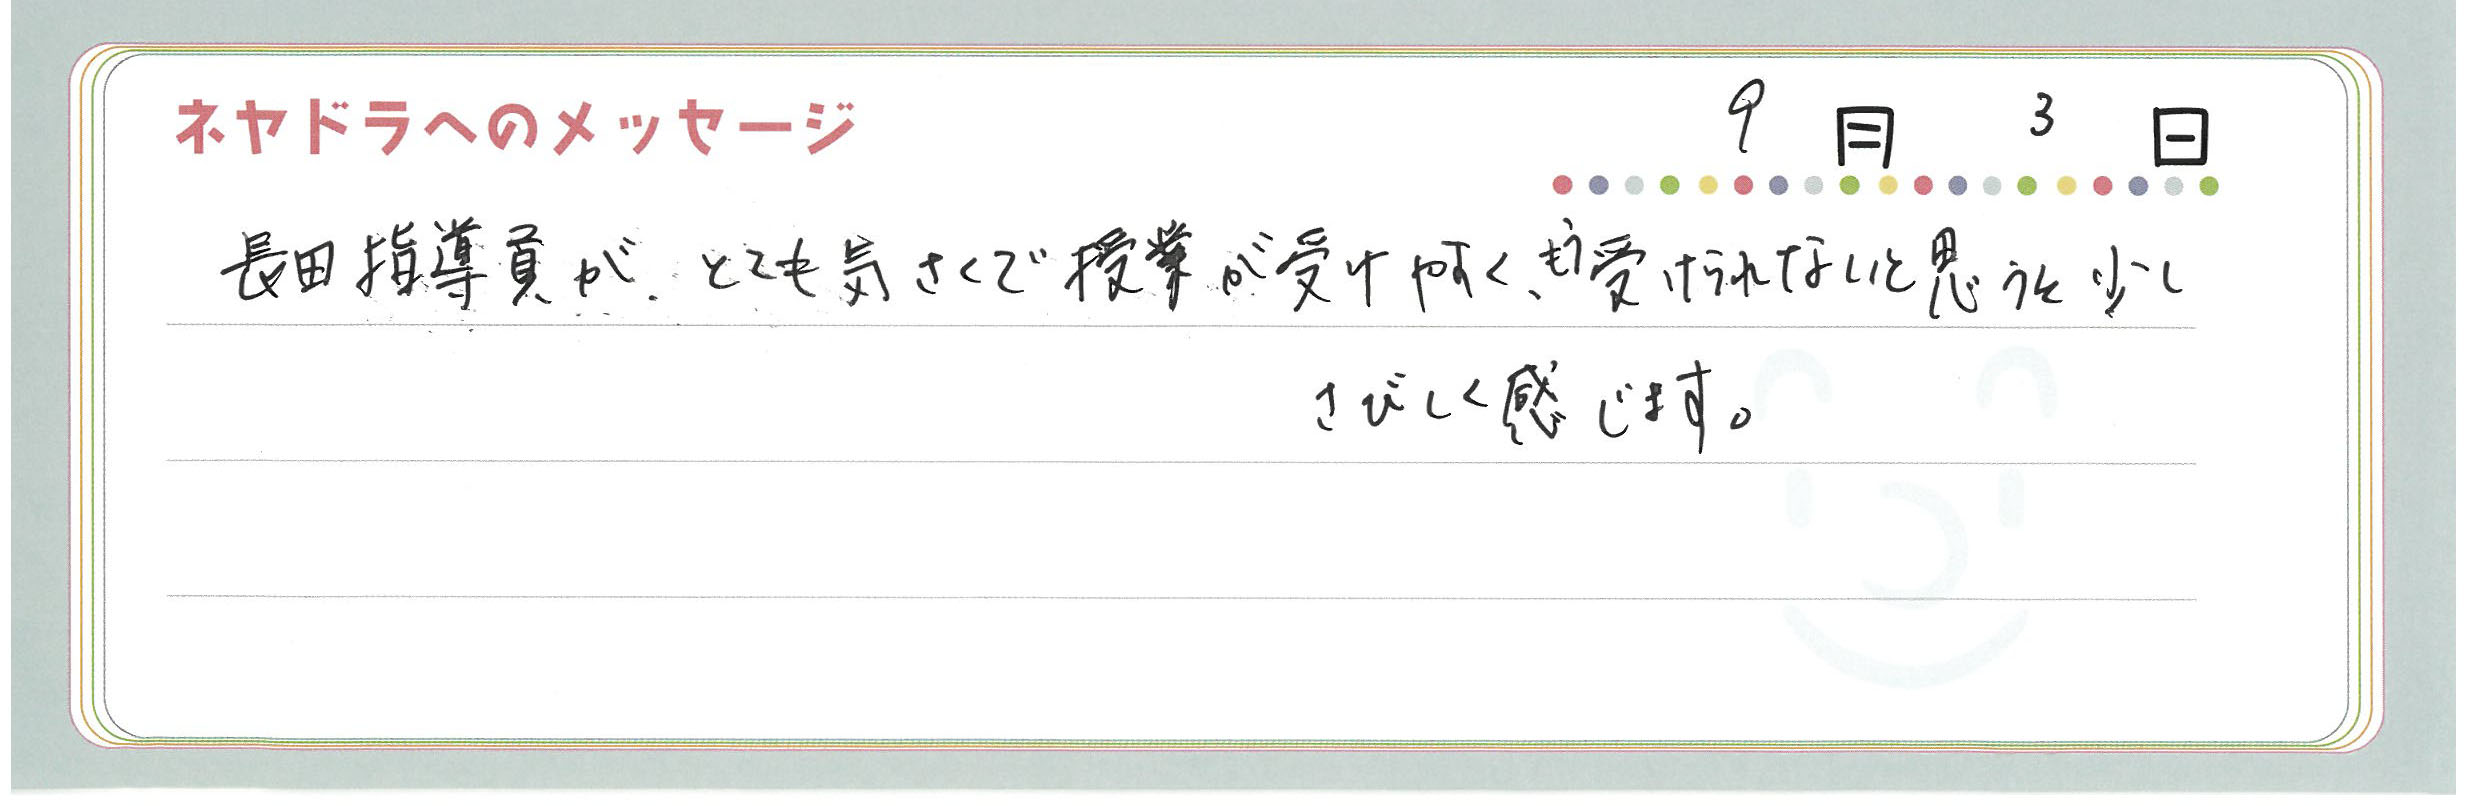 ネヤドラへのメッセージ
9月3日
長田指導員が、とても気さくで授業が受けやすく、もう受けられないと思うと少し
さびしく感じます。